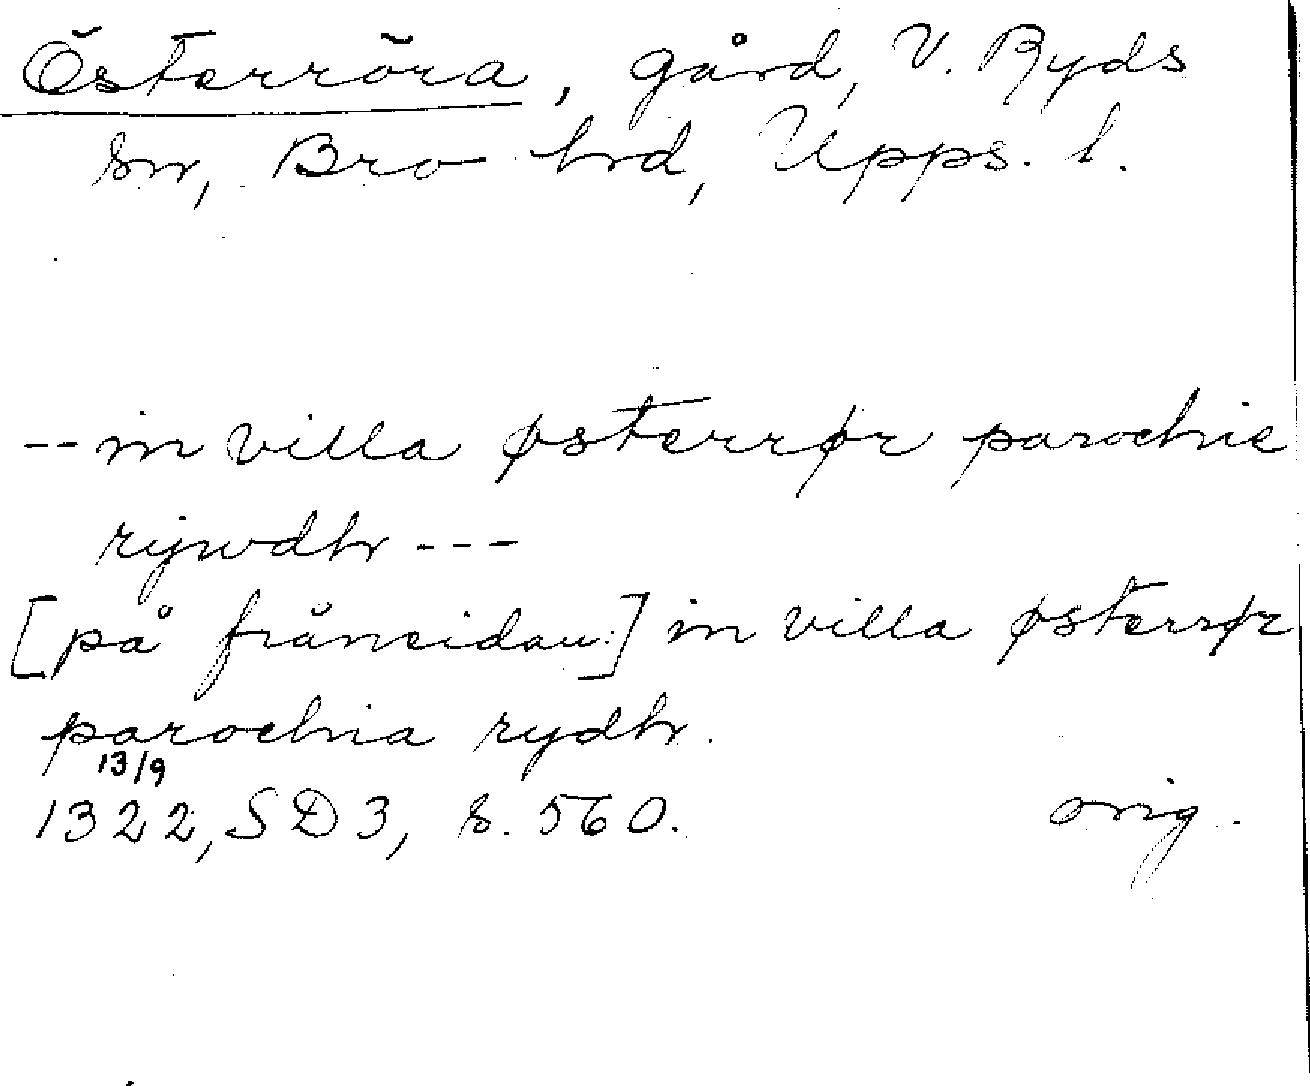 Österröra, gård, V. Ryds
sn, Bro hrd, Upps. l.
-- in villa østerrør parochie
rijwdhr ---
[på frånsidan:] in villa østerrør
parochia rydhr.
13/9
1322, SD3, s. 560. orig.